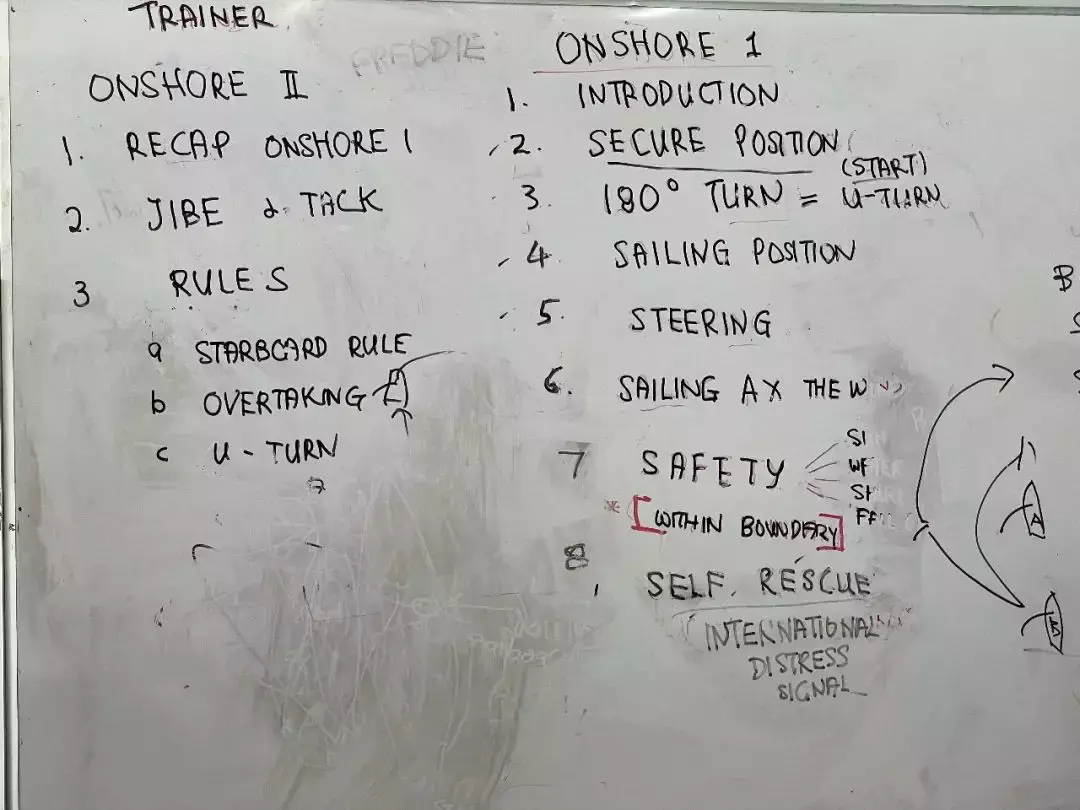 TRAINER
FREDDIE
ONSHORE II
1. RECAP ONSHORE 1
2. JIBE & TACK
3 RULES
a STARBOARD RULE
b OVERTAKING
c U-TURN
ONSHORE 1
1. INTRODUCTION
2. SECURE POSITION
(START)
3. 180° TURN = U-TURN
4. SAILING POSITION
5. STEERING
6. SAILING AX THE W
7 SAFETY
SI
WE
SH
* [WITHIN BOUNDARY]
8. SELF. RESCUE
INTERNATIONAL
DISTRESS
SIGNAL
A
B
B